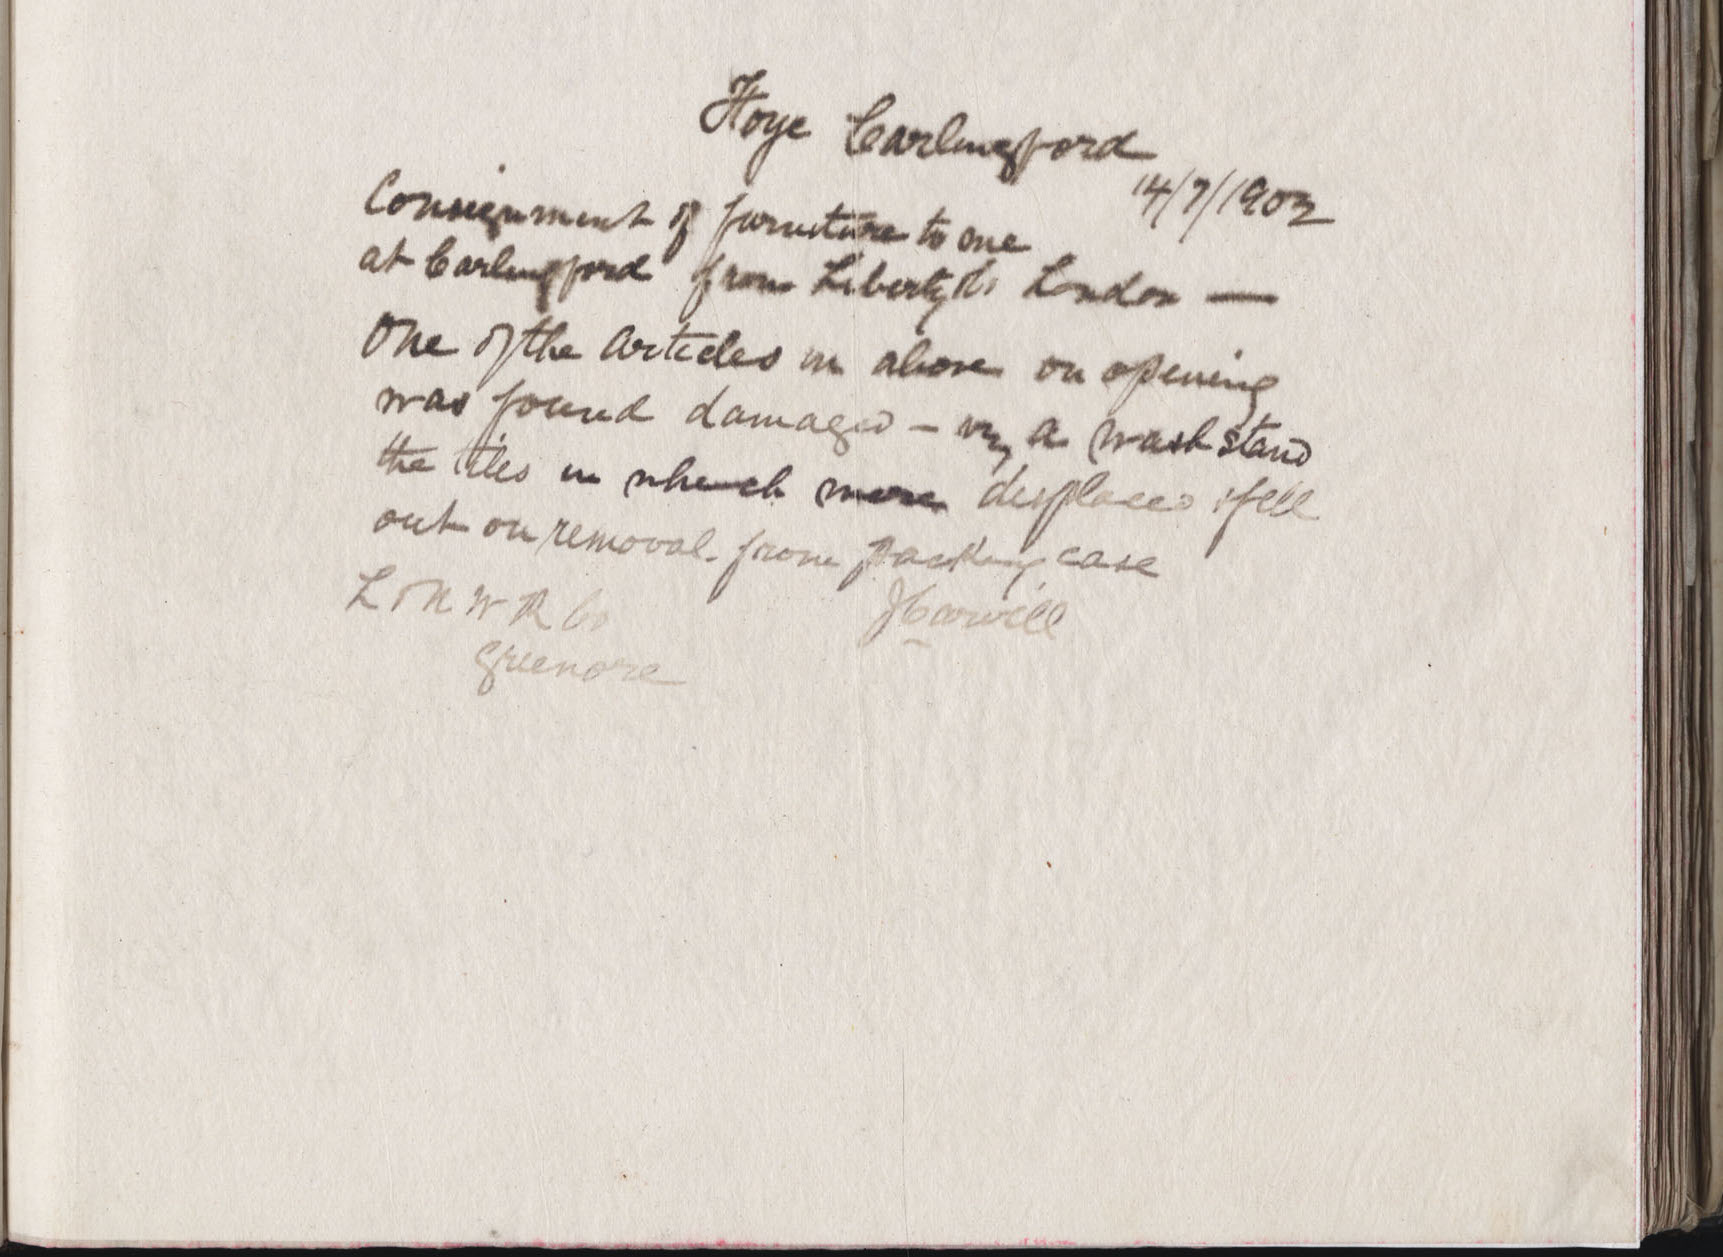 Hoye Carlingford
14/7/1902
Consignment of furniture to me
at Carlingford from Liberty Co London —
One of the articles in above on opening
was found damaged – viz a wash stand
the tiles in which were displaced & fell
out on removal from packing case
L & N W R Co
Greenore